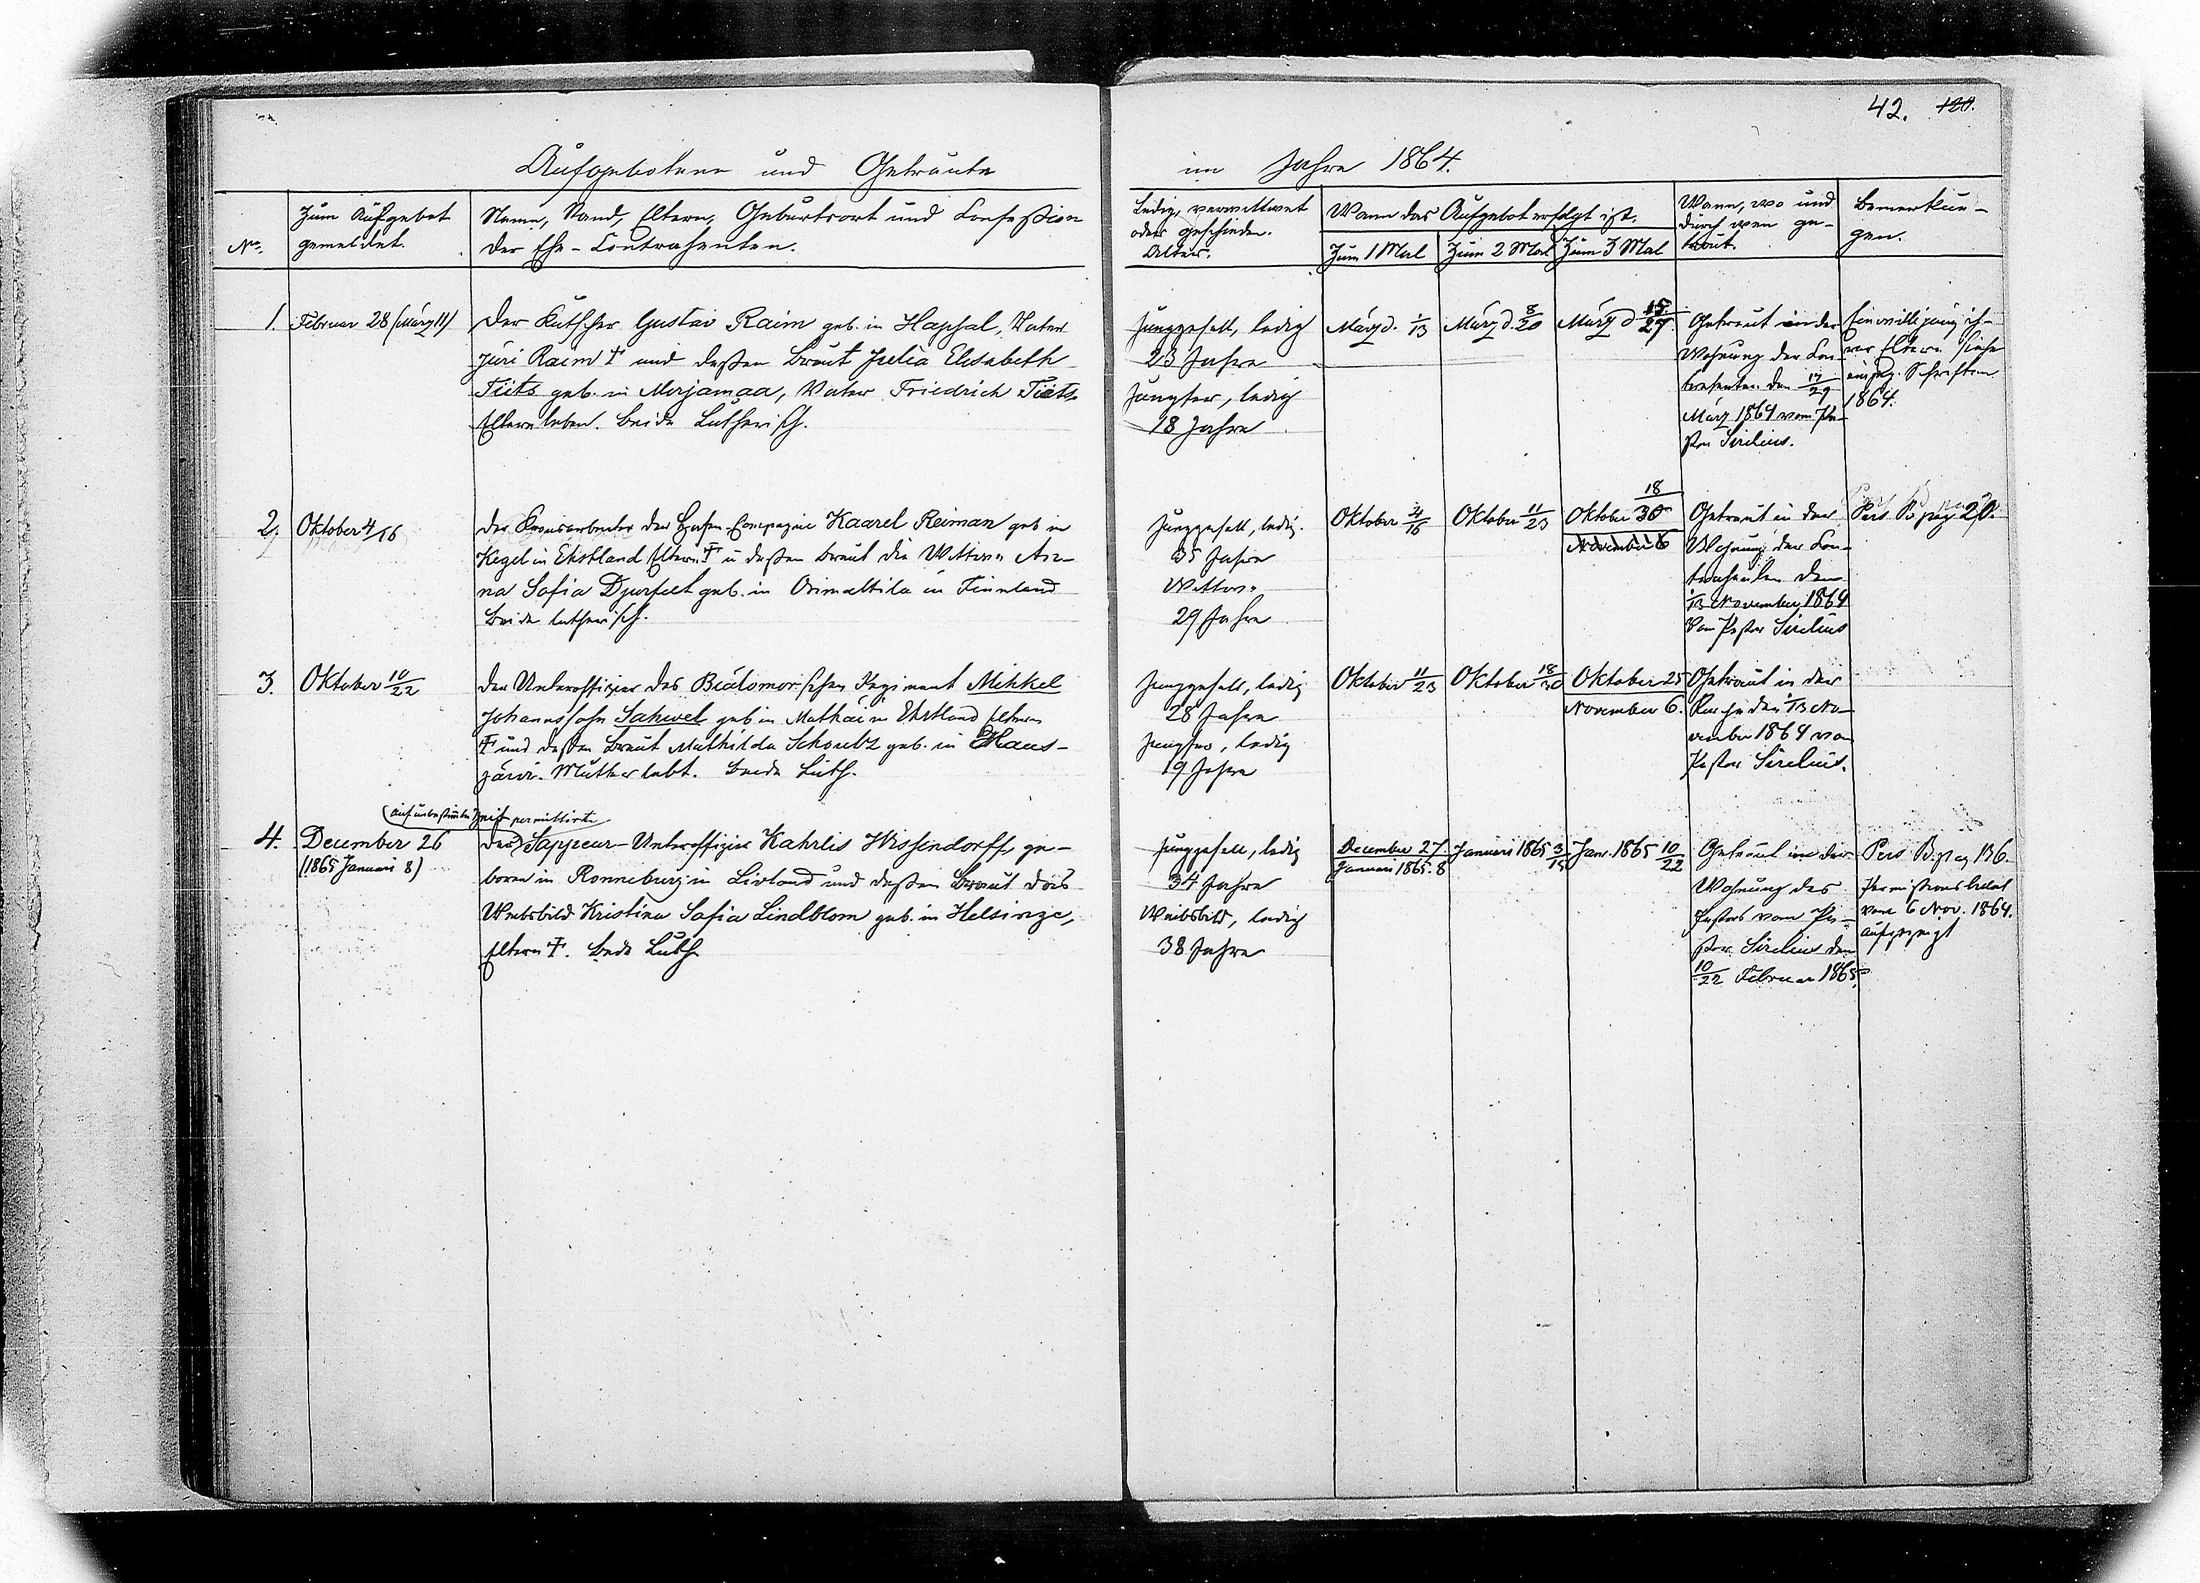 42. 120.
Aufgebotene und Getraute im Jahre 1864.
No.
Zum Aufgebot
gemeldet.
Name, Stand, Eltern, Geburtsort und Confession
der Ehe-Contrahenten.
Ledig, verwittwet
oder geschieden.
Alter.
Wann das Aufgebot erfolgt ist.
Zum 1 Mal
Zum 2 Mal
Zum 3 Mal
Wann, wo und
durch wen ge-
traut.
Bemerkun-
gen.
1.
Februar 28 (März 11)
Der Kutscher Gustav Raim geb. in Hapsal, Vater
Jüri Raim † und deßen Braut Julia Elisabeth
Tiits geb. in Merjamaa, Vater Friedrich Tiits
Eltern leben. Beide Lutherisch.
Junggesell, ledig
23 Jahre
Jungfer, ledig
18 Jahre
März d. 1/13
März d. 8/20
März d 15/27
Getraut in der
Wohnung der Con-
trahenten den 17/29
März 1864 vom Pa-
stor Sirelius.
Einwilligung ih-
rer Eltern siehe
einzeg. Schriften
1864.
2.
Oktober 4/16
Der Kronsarbeiter der Hafen-Compagnie Kaarel Reiman geb in
Kegel in Ehstland Eltern † u deßen Braut die Wittwe An-
na Sofia Djurfelt geb. in Orimattila in Finnland
Beide lutherisch.
Junggesell, ledig.
35 Jahre
Wittwe
29 Jahre
Oktober 4/16
Oktober 11/23
Oktober 18/30
November 6
Getraut in der
Wohnung der Con-
trahenten den
1/13 November 1864
vom Pastor Sirelius
Pers. B. pag 20.
3.
Oktober 10/22
Der Unteroffizier des Biälomorschen Regiment Mihkel
Johannssohn Sahwel geb in Mathäi in Ehstland Eltern
† und deßen Braut Mathilda Schoultz geb. in Haus-
järvi. Mutter lebt. Beide Luth.
Junggesell, ledig
28 Jahre
Jungfer, ledig
19 Jahre
Oktober 11/23
Oktober 18/30
Oktober 25
November 6.
Getraut in der
Kirche den 1/13 No-
vember 1864 von
Pastor Sirelius.
4.
December 26
(1865 Januari 8)
(auf unbestimmte Zeit permittirte
Der Sappeur-Unteroffizier Kahrlis Wissendorff, ge-
boren in Ronneburg in Livland und deßen Braut das
Weibsbild Kristina Sofia Lindblom geb. in Helsinge,
Eltern †. Beide Luth
Junggesell, ledig
34 Jahre
Weibsbild, ledig
38 Jahre
December 27.
Januari 1865. 8
Januari 1865 3/15
Janr. 1865 10/22
Getraut in der
Wohnung des
Pastors vom Pa-
stor Sirelius den
10/22 Februar 1865
Pers. B. pag 136.
Permissionsbillet
vom 6 Nov. 1864.
aufgezeigt